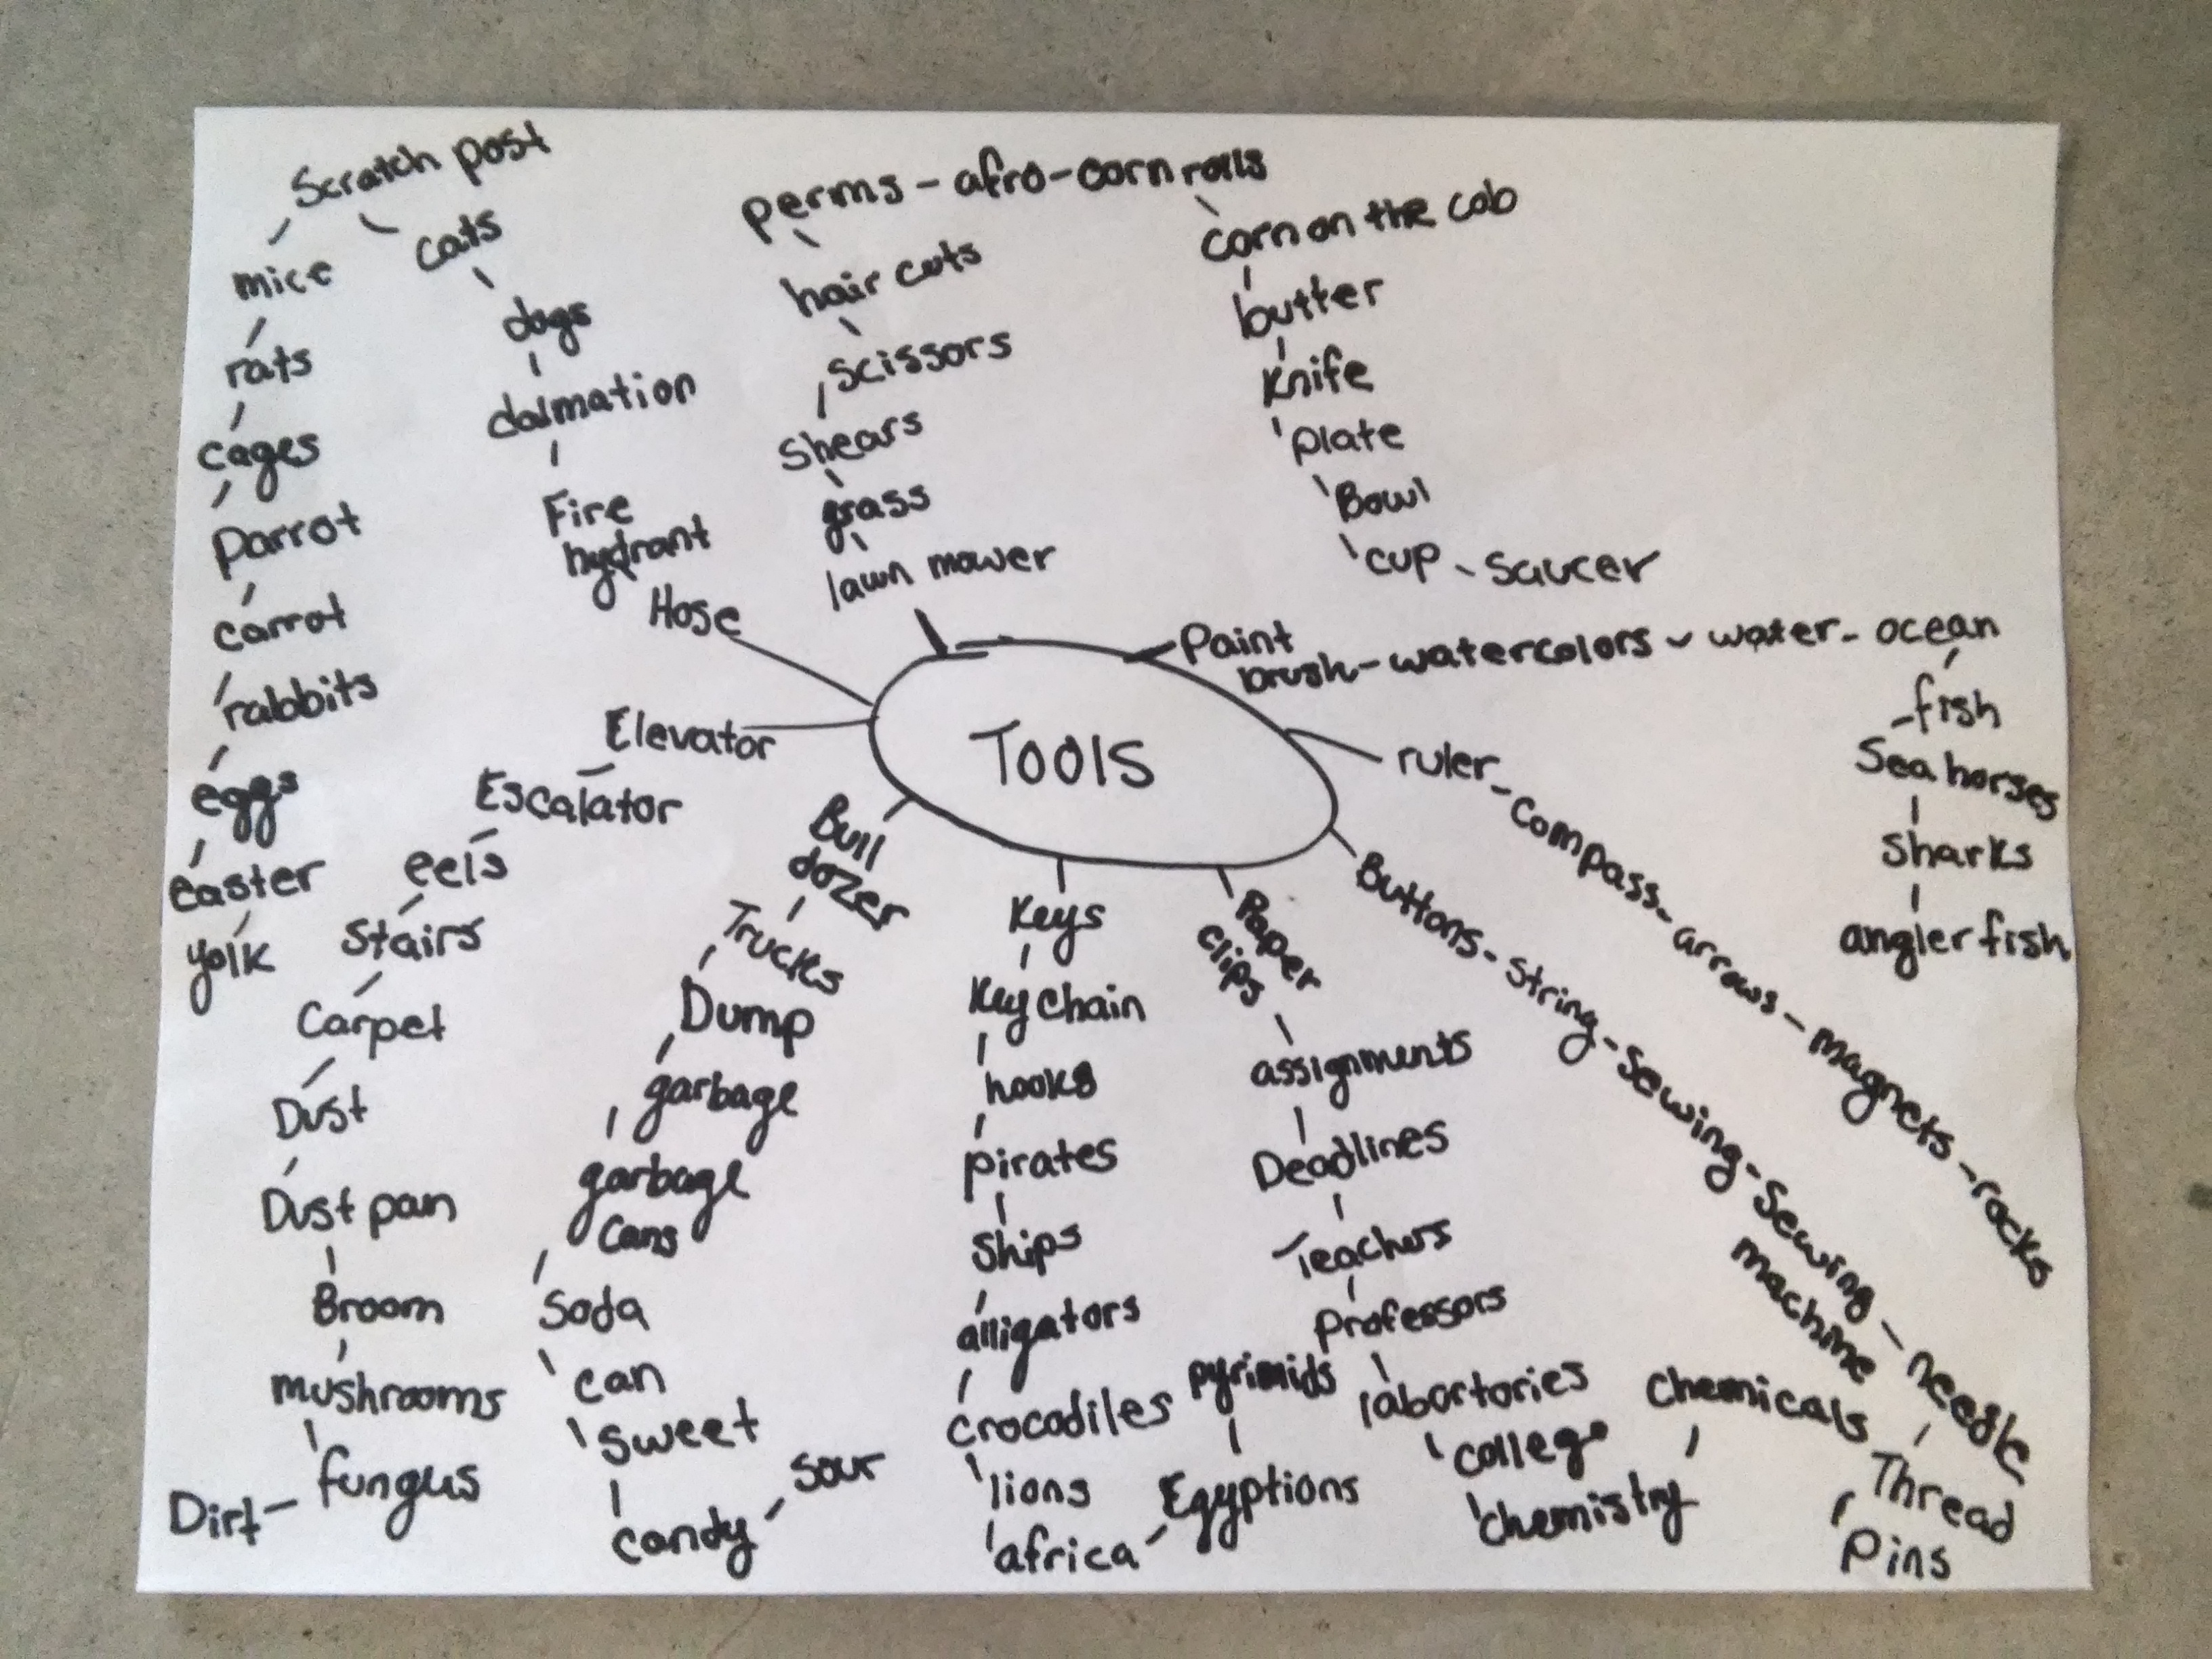 TOOLS
Hose
Fire
hydrant
dalmation
dogs
cats
Scratch post
mice
rats
cages
parrot
carrot
rabbits
eggs
easter
yolk
lawn mower
grass
shears
scissors
hair cuts
perms - afro - corn rolls
corn on the cob
butter
Knife
plate
Bowl
cup - saucer
Paint
brush - watercolors - water - ocean
fish
Sea horses
sharks
angler fish
ruler - compass - arrows - magnets - rocks
Buttons - string - Sewing - Sewing - needle
machine
Thread
Pins
Paper
clips
assignments
Deadlines
Teachers
professors
labortories
college
chemistry
chemicals
Keys
Key chain
hooks
pirates
ships
alligators
crocodiles
lions
africa - Egyptions
pyrimids
Bull
dozer
Trucks
Dump
garbage
garbage
cans
soda
can
sweet
candy - sour
Elevator
Escalator
eels
stairs
carpet
Dust
Dust pan
Broom
mushrooms
Dirt - fungus